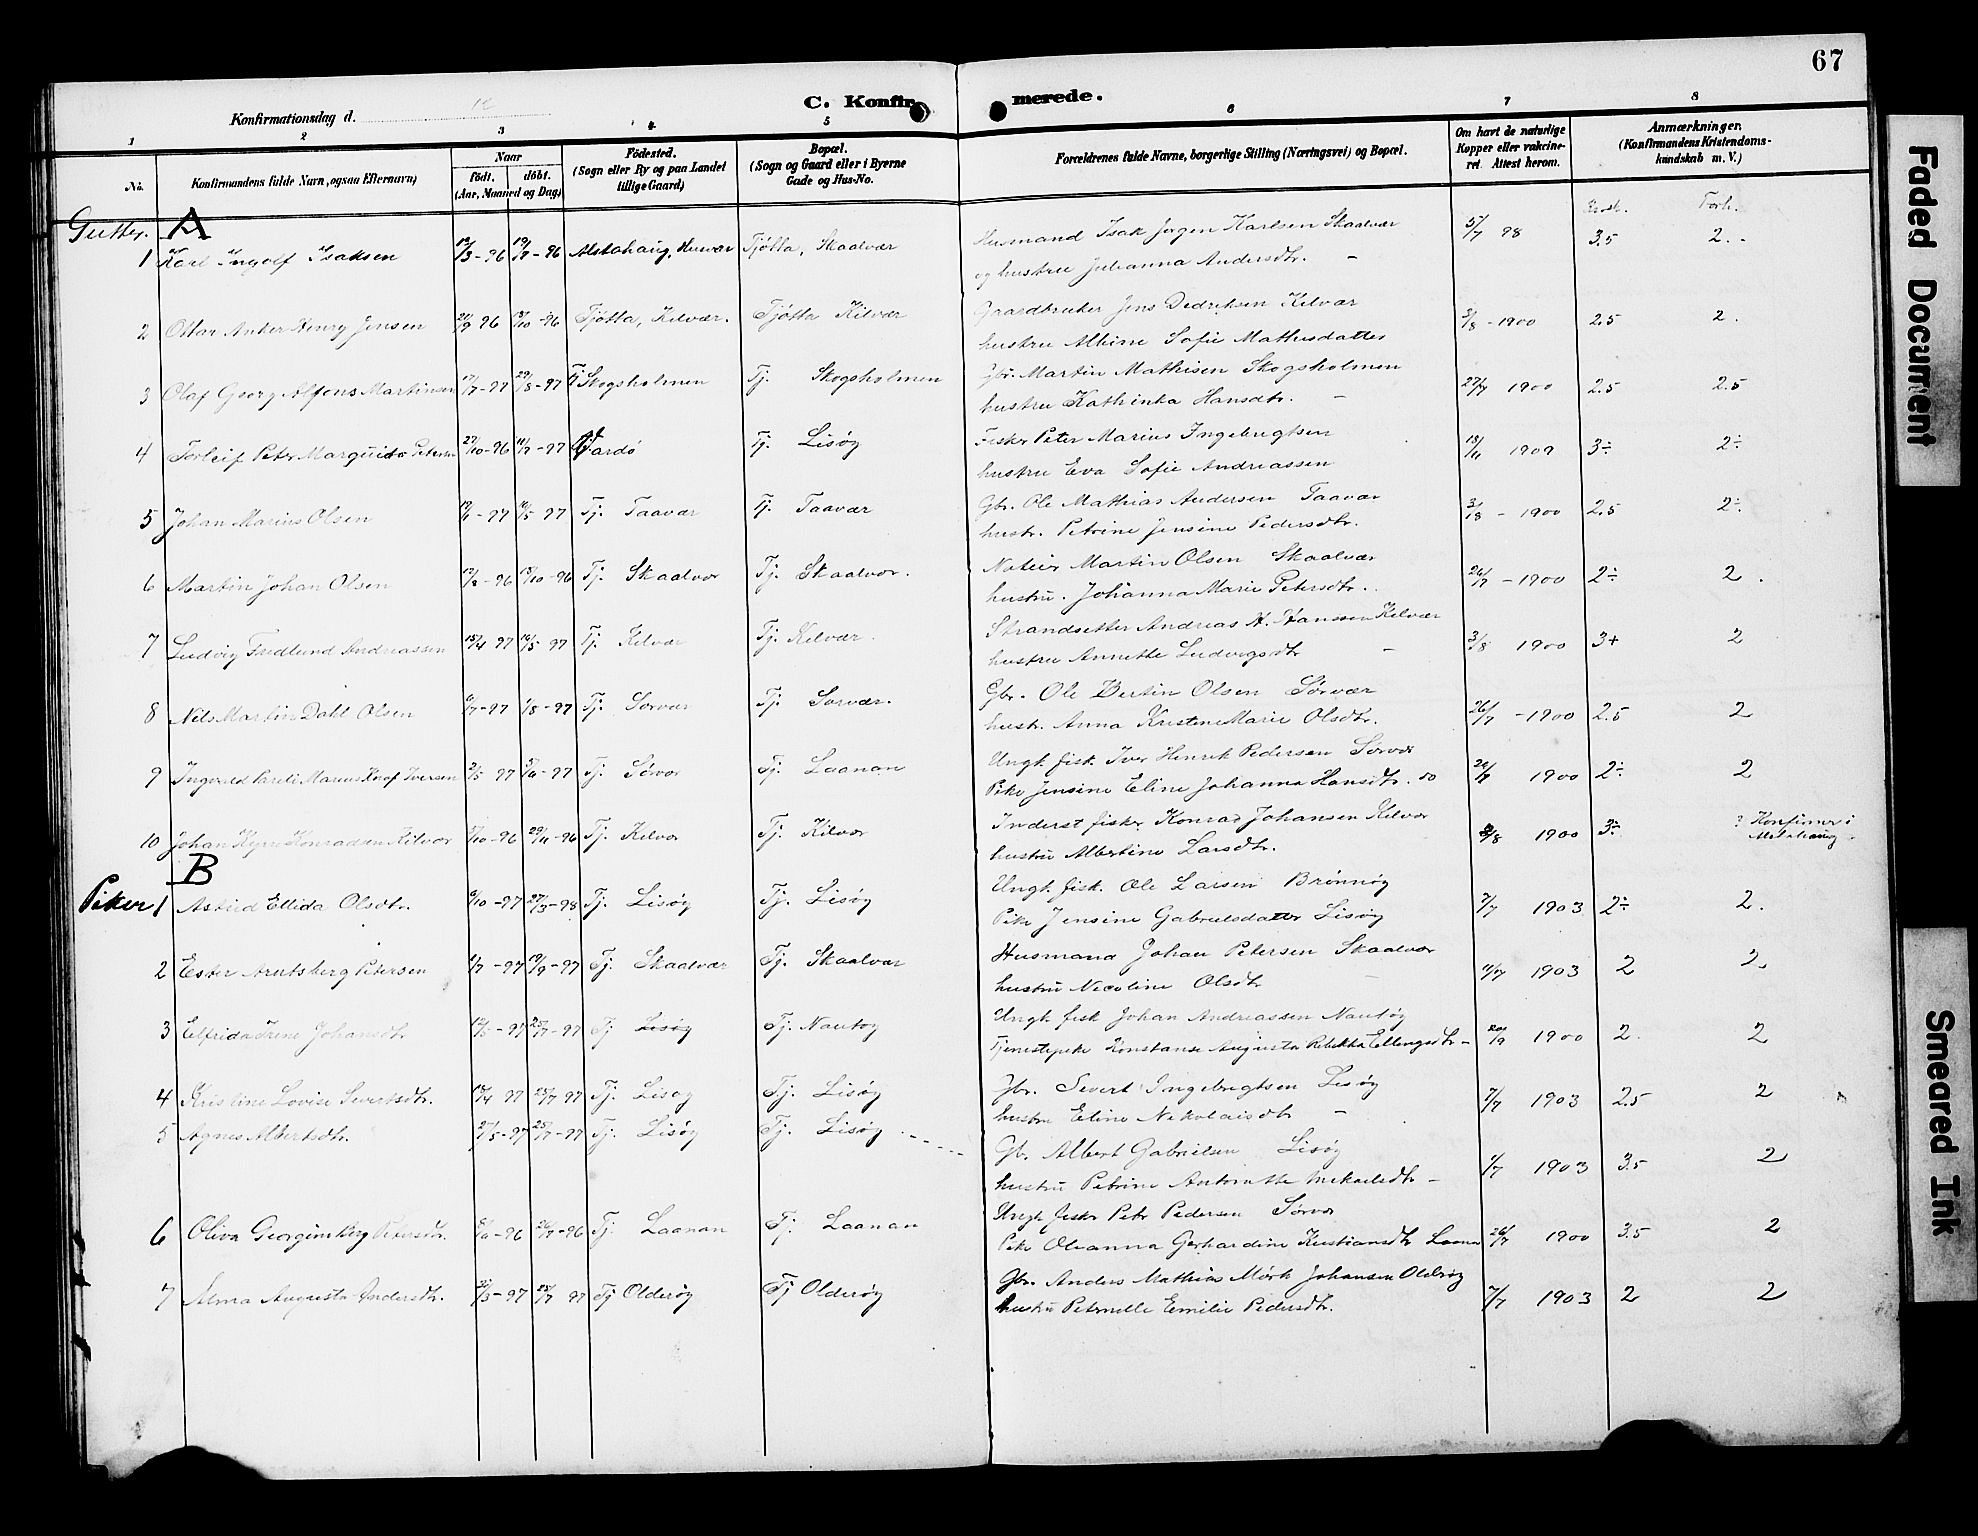 67
C. Konfirmerede.
Konfirmationsdag d.
1 2 3 4 5 6 7 8
No.
Konfirmandens fulde Navn, ogsaa Efternavn)
Naar
födt. döbt.
(Aar, Maaned og Dag)
Födested.
(Sogn eller By og paa Landet
tillige Gaard)
Bopæl.
(Sogn og Gaard eller i Byerne
Gade og Hus-No.
Forældrenes fulde Navne, borgerlige Stilling (Næringsvei) og Bopæl.
Om havt de naturlige
Kopper eller vakcine-
ret. Attest herom.
Anmærkninger.
(Konfirmandens Kristendoms-
kundskab m. V.)
Gutter. A
Forh.
1 Karl Ingolf Isaksen 12/3-96 19/7-96 Alstahaug, Husvær Tjøtta, Skaalvær Husmand Isak Jørgen Karlsen Skaalvær 5/7 98 3.5 2.-
og hustru Julianna Andersdtr. -
2 Ottar Anker Henry Jensen 20/9 96 -96 Tjøtta, Kilvær. Tjøtta Kilvær Gaardbruker Jens Dedriksen Kilvær 3/8-1900 2.5 2.
hustru Albine Sofie Mathisdatter
3 Olaf Georg Alfons Martinsen 17/7-97 29/8-97 Tj Skogsholmen Tj. Skogsholmen Gbr. Martin Mathisen Skogsholmen 27/7 1900 2.5 2.5
hustru Kathinka Hansdtr. -
4 Torleif Peter Marquido Petersen 27/10-96 11/7-97 Vardö Tj. Lisøy Fisker Peter Marius Ingebrigtsen 3÷ 2÷
hustru Eva Sofie Andreassen
5 Johan Marius Olsen -97 16/5-97 Tj. Taavær Tj. Taavær Gbr. Ole Mathias Andersen Taavær -1900 2.5 2÷
hustr. Petrine Jensine Pedersdtr.
6 Martin Johan Olsen 12/8-96 18/10-96 Tj. Skaalvær Tj. Skaalvær. Martin Olsen Skaalvær 26/7-1900 2÷ 2.
hustru. Johanna Marie Petersdtr.
7 Ludvig Fredlund Andreassen 15/4 97 16/5 97 Tj. Kilvær Tj. Kilvær. Strandsetter Andreas H. Hanssen Kilvær 3/8 1900 3+ 2
hustru Annette Ludvigsdtr -
8 Nils Martin Dahl Olsen 6/7-97 1/8-97 Tj. Sørvær Tj. Sørvær. Gbr. Ole Bertin Olsen Sørvær 26/7-1900 2.5 2
hustr. Anna Kristine Marie Olsdtr.
9 Ingvald Pareli Marius Knof Iversen 2/5 97 -97 Tj. Sørvær Tj. Laanan Ungk. fisk. Iver Henrik Pedersen Sørvær 1900 2÷ 2
Pike Jensine Eline Johanna Hansdtr. do
10 Johan Konradsen Kilvær -96 29/11-96 Tj. Kilvær Tj. Kilvær Inderst fisker Konrad Johansen Kilvær 3/8 1900 3÷ ? Konfirmer i
Alstahaug
hustru Albertine Larsdtr.
B
Piker 1 Astrid Ellida Olsdtr. 6/10-97 27/3-98 Tj. Lisøy Tj. Lisøy Ungk. fisk. Ole Larsen Brønnøy 7/7 1903 2÷ 2.
Pike Jensine Gabrielsdatter Lisøy
2 Ester Arntsberg Petersen 1/7-97 19/9-97 Tj. Skaalvær Tj. Skaalvær Husmand Johan Petersen Skaalvær 1903 2 2.
hustru Nicoline Olsdtr -
3 Elfrida Irene Johansdtr. 12/5-97 25/7-97 Tj Lisøy Tj. Nautøy Ungk. fisk Johan Andreassen Nautøy 1900 2. 2
Tjenestepike Konstanse Augusta Rebekka Ellingsdtr-
4 Kristine Lovise Sivertsdtr. 15/4 97 25/7 97 Tj. Lisøy Tj. Lisøy Gbr. Severt Ingebrigtsen Lisøy 7/7 1903 2.5 2
hustru Eline Nikolaisdtr -
5 Agnes Albertsdtr. 27/5-97 25/7-97 Tj. Lisøy Tj. Lisøy Gb. Albert Gabrielsen Lisøy 1/7 1903 3.5 2
hustru Petrine Antonette Mikaelsdtr -
6 Oliva Georgine Berg Petersdtr. -96 26/7-96 Tj. Laanan Tj. Laanan Ungk. fisker Petr Pedersen Sørvær 26/7 1900 3.5 2
Pike Oleanna Gerhardine Kristiansdtr Laanan
7 Alma Augusta Andersdtr. -97 25/7 97 Tj Olderøy Tj Olderøy Gbr. Anders Mathias Mørk Johansen Olderøy 7/7 1903 2 2
hustru Petrnelle Emilie Pedersdtr.
Faded Document
Smeared Ink